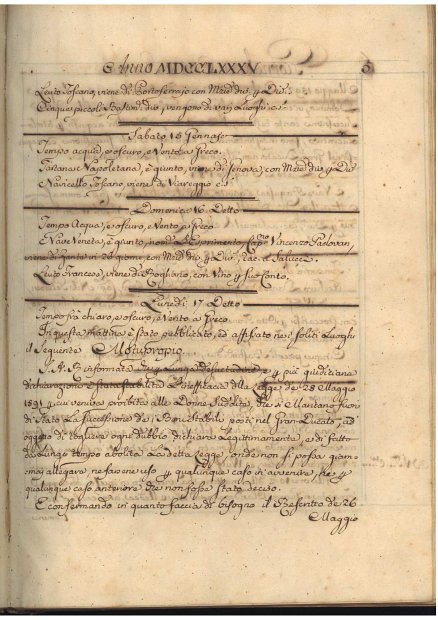 Anno MDCCLXXXV 5
Leuto Toscano, viene di Portoferrajo con Merd: dus: p Div:
Cinque piccoli Bastim:ti dus, vengono di varj Luoghi e s:
Sabato 15 Gennajo
Tempo acqua, e oscuro, e Vento a Greco.
Tartana Napoletana, è giunto, viene di Genova, con Merd: dus: p Div:
Navicello Toscano, viene di Viareggio e s:
Domenica 16 Detto
Tempo Acqua, e oscuro, e Vento a Greco
E Nave Veneta, è giunto, nom: L'Esperimento Cap:no Vincenzo Padovan,
viene di in 26 giorni, con Merd: dus: p Div: Rac: a Salucci.
Leuto Francese, viene di Rogliano, con Vino p suo Conto.
Lunedì 17 Detto
Tempo frà chiaro, e oscuro, e Vento a Greco.
In questa mattina è stato pubblicato, ed affissato nei soliti Luoghi
il Seguente Motuproprio
S. A. R. informata che la Lunga desuetudine e p più giudiciarie
dichiarazioni è stata stabilita L'inefficacia della Legge de' 28 Maggio
p cui veniva proibito alle Donne Suddite, che si Maritano fuori
di Stato La successione de' Beni Stabili posti nel Gran Ducato, ad
oggetto di togliere ogni dubbio, dichiara Legittimamente, e di fatto
da lungo tempo abolita La detta Legge, onde non si possa giam-
mai allegare, ne farsene uso p qualunque caso in avvenire, ne p
qualunque caso anteriore che non fosse stato deciso.
E confermando in quanto faccia di bisogno il Rescritto de 26
Maggio